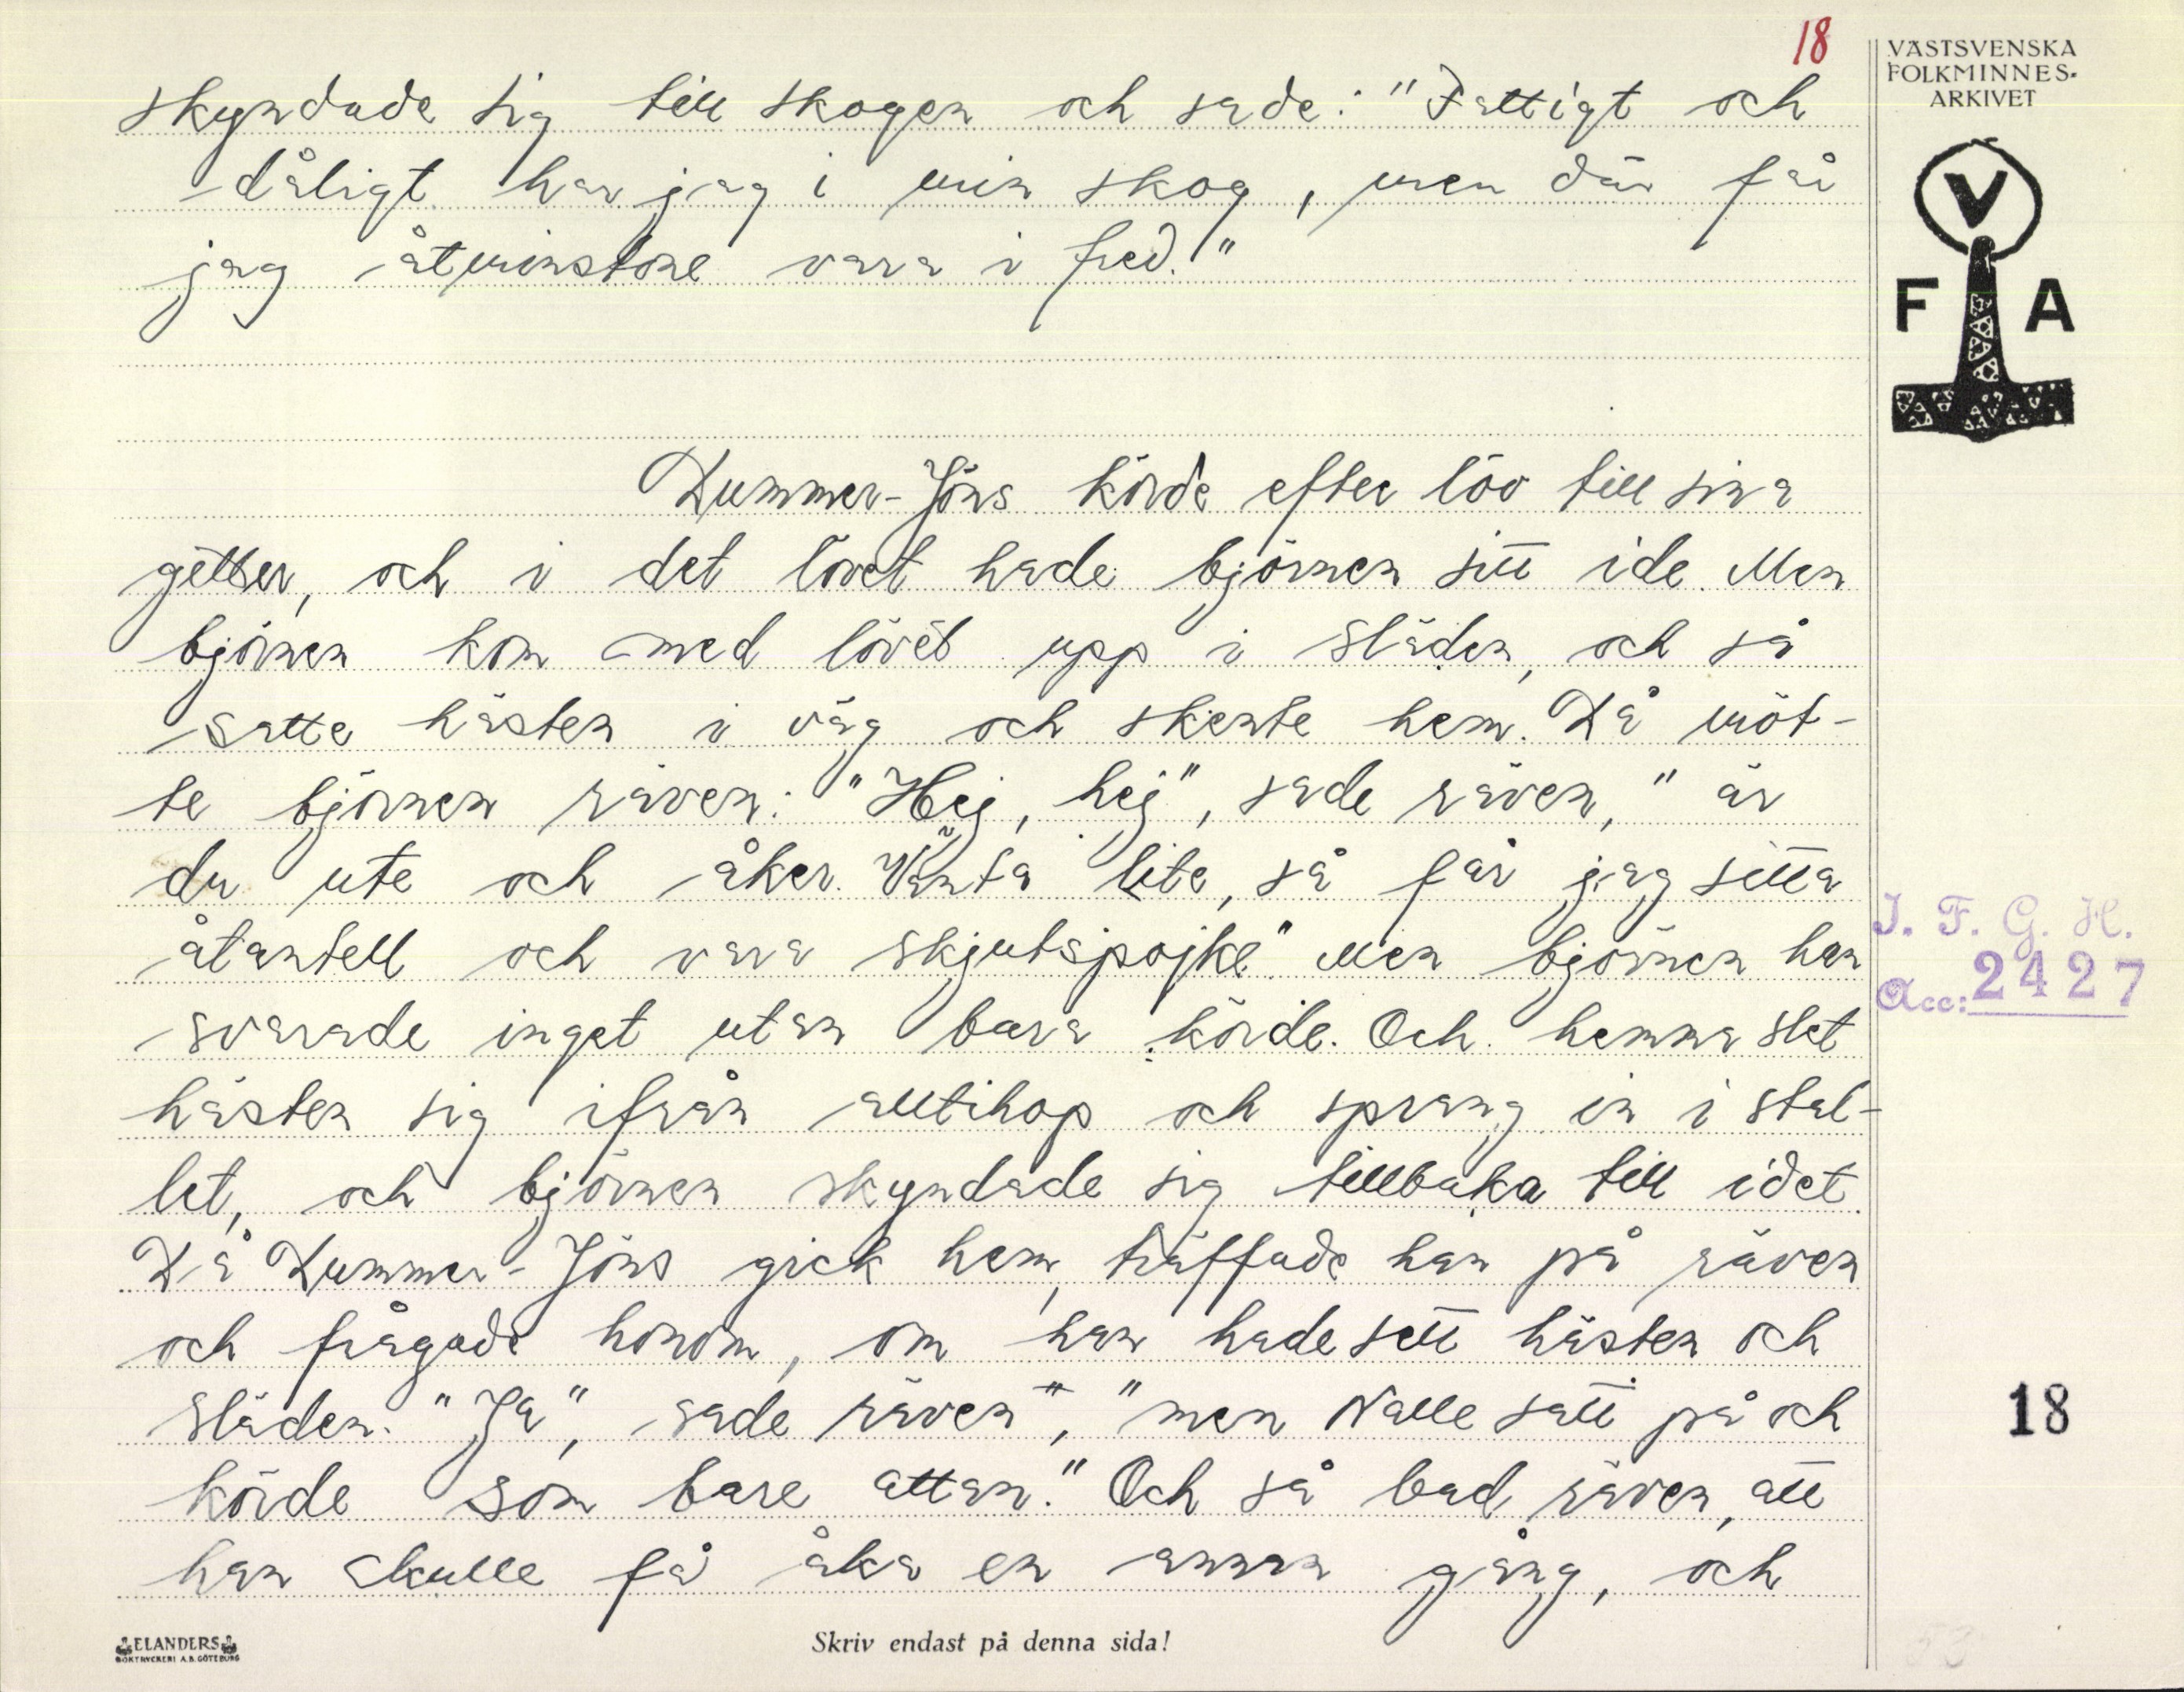 18
VÄSTSVENSKA
FOLKMINNES-
ARKIVET
skyndade sig till skogen och sade: "Fattigt och
dåligt har jag i min skog, men där får
jag åtminstone vara i fred."
V
F A
Dummer-Jöns körde efter löv till sina
getter, och i det lövet hade björnen sitt ide. Men
björnen kom med lövet upp i släden, och så
satte hästen i väg och skente hem. Då möt-
te björnen räven: "Hej, hej", sade räven, "är
du ute och åker. Vänta lite, så får jag sitta
åtantell och vara skjutspojke" Men björnen han
svarade inget utan bara körde. Och hemma slet
hästen sig ifrån alltihop och sprang in i stal-
let, och björnen skyndade sig tillbaka till idet.
Då Dummer-Jöns gick hem, träffade han på räven
och frågade honom, om han hade sett hästen och
släden. "Ja", sade räven", "men Nalle satt på och
körde som bare attan." Och så bad räven, att
han skulle få åka en annan gång, och
I. F. G. H.
Acc: 2427
18
ELANDERS
BOKTRYCKERI A.B. GÖTEBORG
Skriv endast på denna sida!